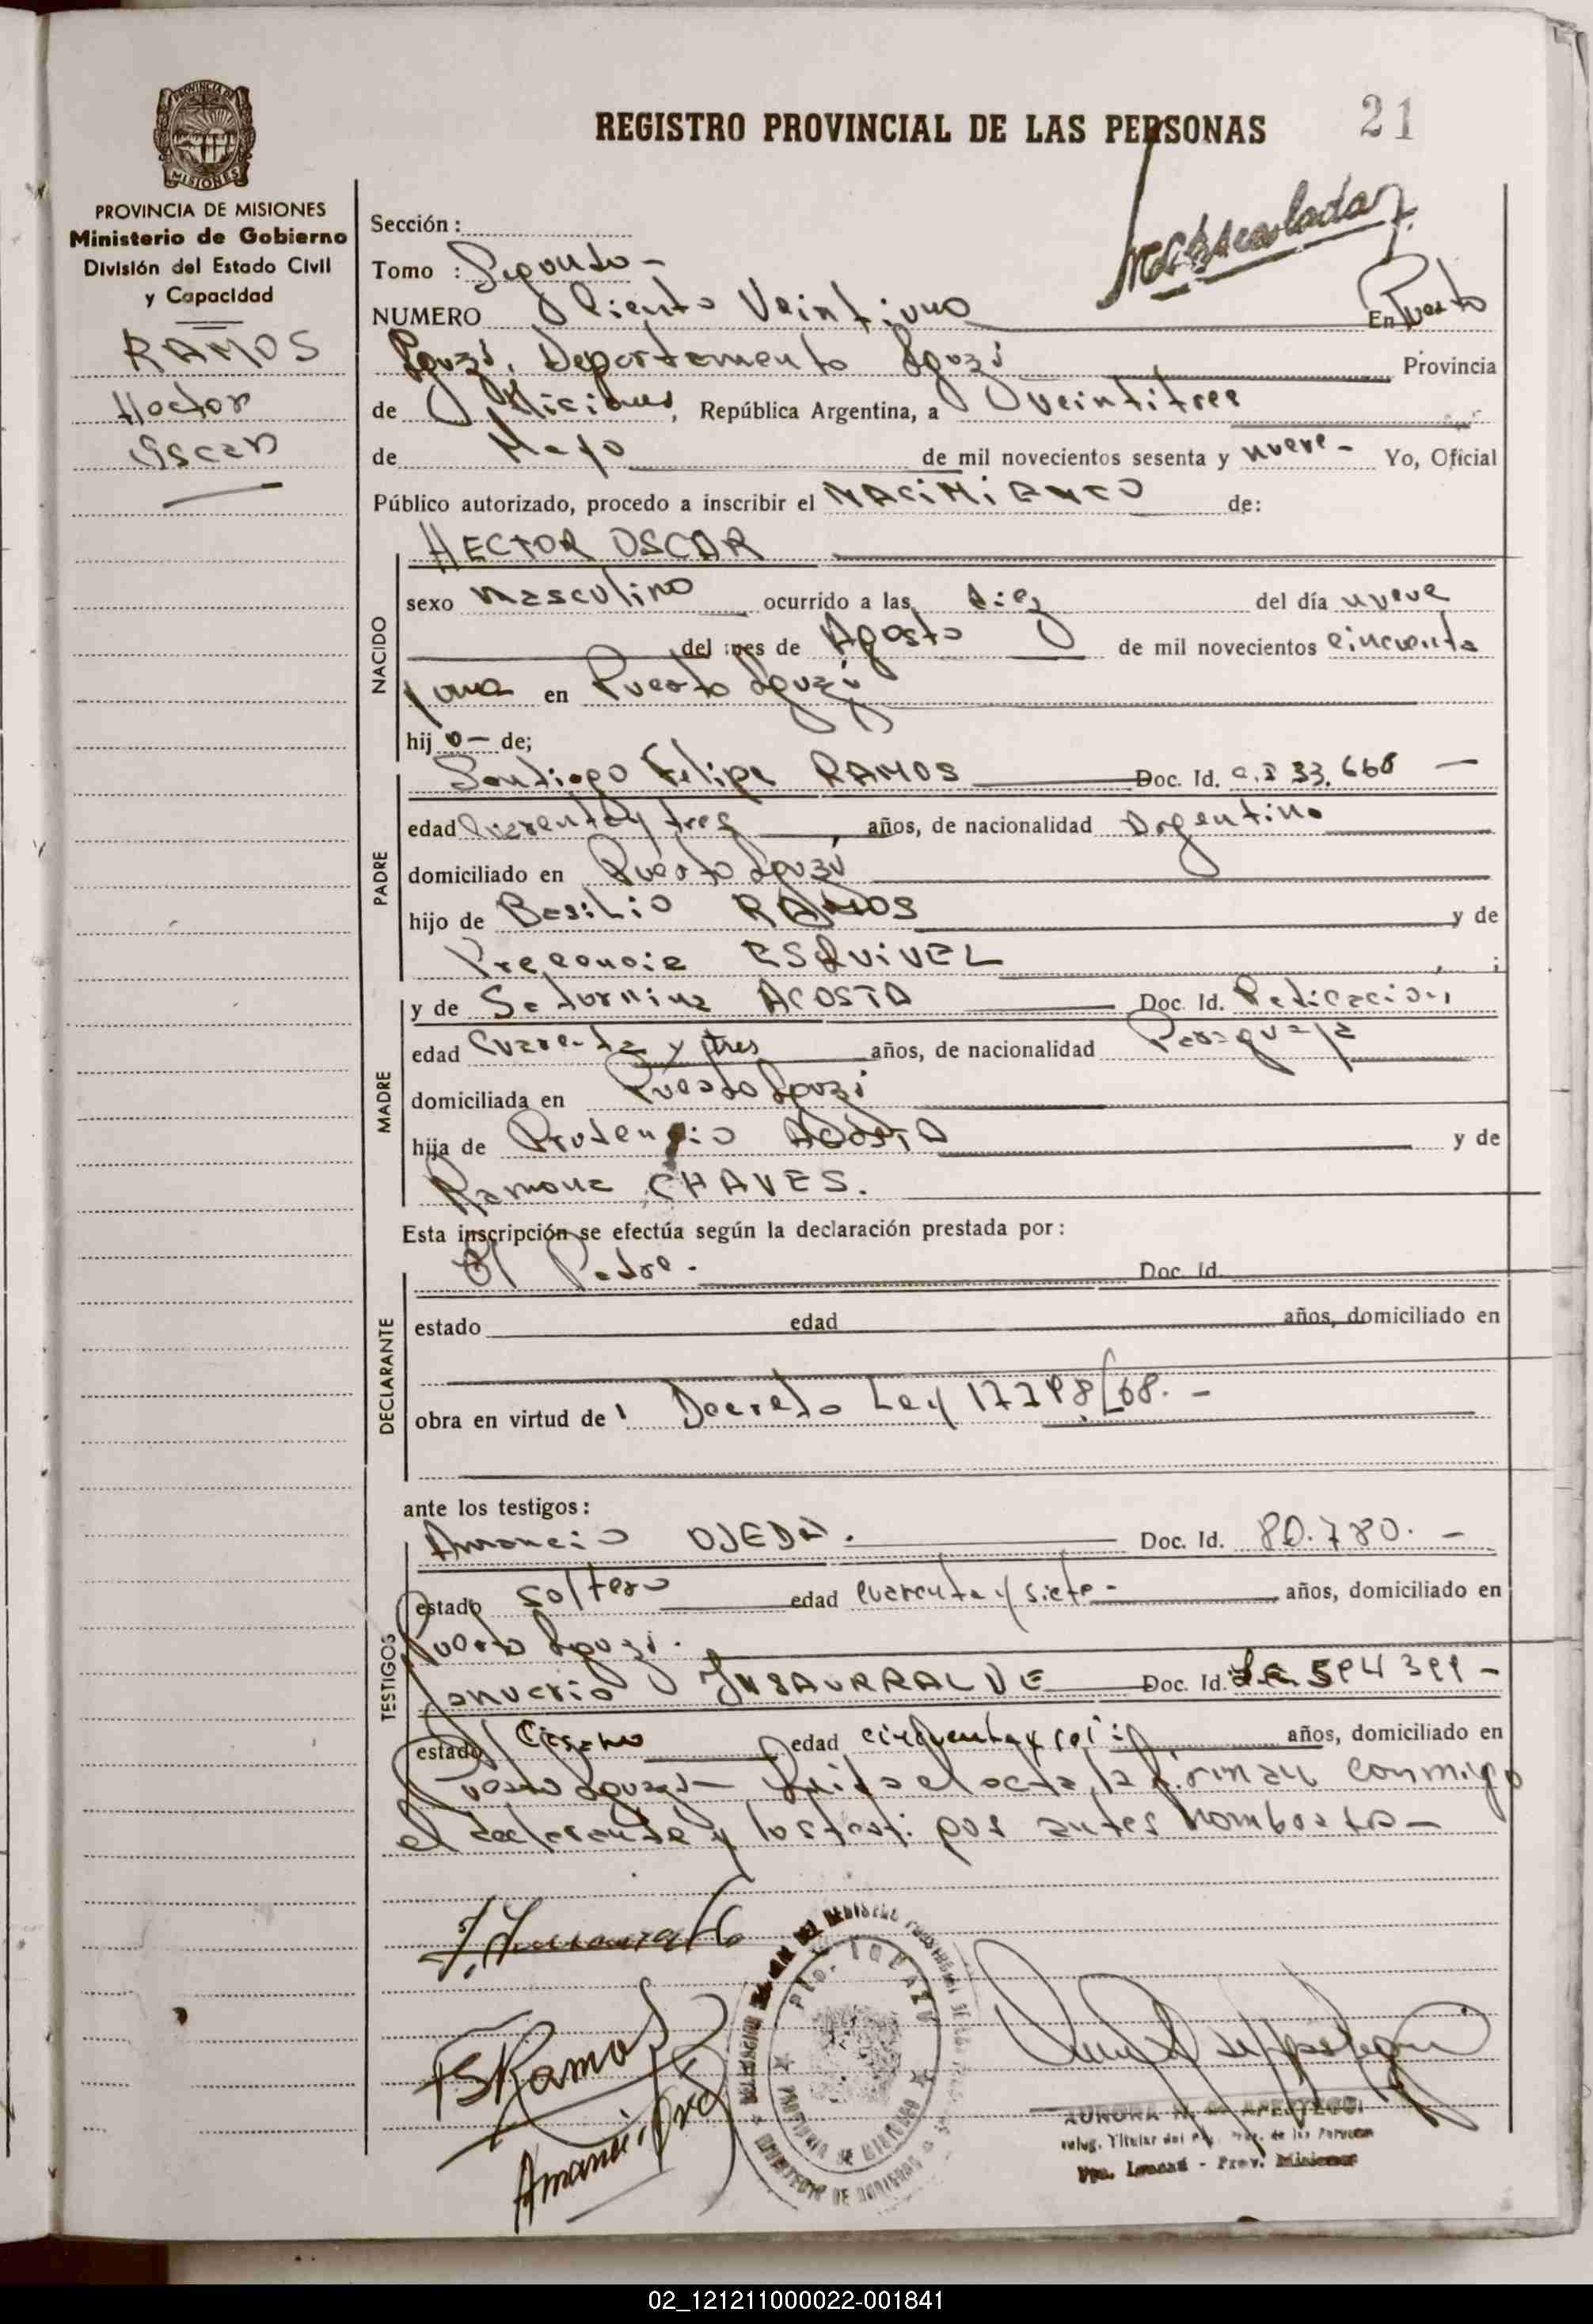 REGISTRO PROVINCIAL DE LAS PERSONAS
21
PROVINCIA DE
MISIONES
PROVINCIA DE MISIONES
Ministerio de Gobierno
División del Estado Civil
y Capacidad
RAMOS
Hector
Oscar
Sección :
Tomo : Segundo -
NUMERO Ciento Veintiuno En Puesto
Iguazú, Departamento Iguazú Provincia
de Misiones, República Argentina, a veintitres
de Mayo de mil novecientos sesenta y nueve - Yo, Oficial
Público autorizado, procedo a inscribir el NACIMIENTO de:
NACIDO
HECTOR OSCAR
sexo masculino ocurrido a las diez del día nueve
del mes de Agosto de mil novecientos cincuenta
y uno en Puerto Iguazú
hij o- de;
PADRE
Santiago Felipe RAMOS Doc. Id. C.I 33.668 -
edad Cuarenta y tres años, de nacionalidad Argentino
domiciliado en Puerto Iguazú
hijo de Basilio RAMOS y de
ESQUIVEL ;
MADRE
y de Saturnina ACOSTA Doc. Id.
edad Cuarenta y tres años, de nacionalidad Paraguaya
domiciliada en Puerto Iguazú
hija de Prudencio ACOSTA y de
Ramona CHAVES.
Esta inscripción se efectúa según la declaración prestada por :
DECLARANTE
El Padre . Doc. Id.
estado edad años, domiciliado en
obra en virtud de : Decreto Ley
ante los testigos :
TESTIGOS
Amancio OJEDA . Doc. Id. 80.780. -
estado soltero edad cuarenta y siete - años, domiciliado en
Puerto Iguazú .
Januario INSAURRALDE Doc. Id. 594399 -
estado Casado edad cincuenta y seis años, domiciliado en
Puerto Iguazú - Leida el acta la firman conmigo
el declarante y los testigos antes nombrados -
F S Ramos
Amancio
PTO. IGUAZU
PROVINCIA DE MISIONES
MINISTERIO DE GOBIERNO
AURORA
Pto. Iguazú - Prov. Misiones
02_121211000022-001841